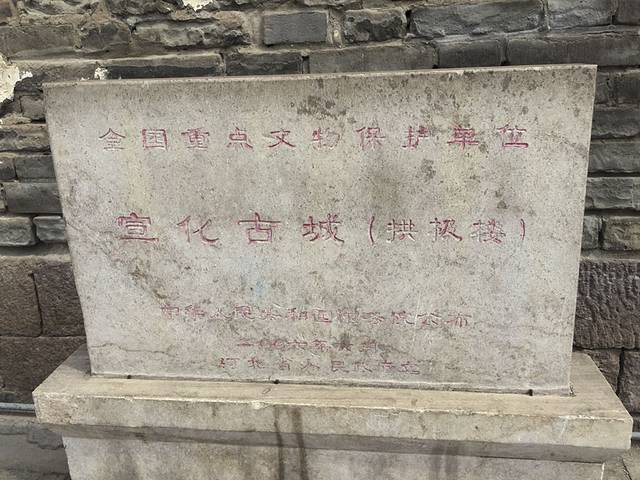 全国重点文物保护单位
宣化古城(拱极楼)
中华人民共和国国务院公布
二〇〇六年五月
河北省人民政府立